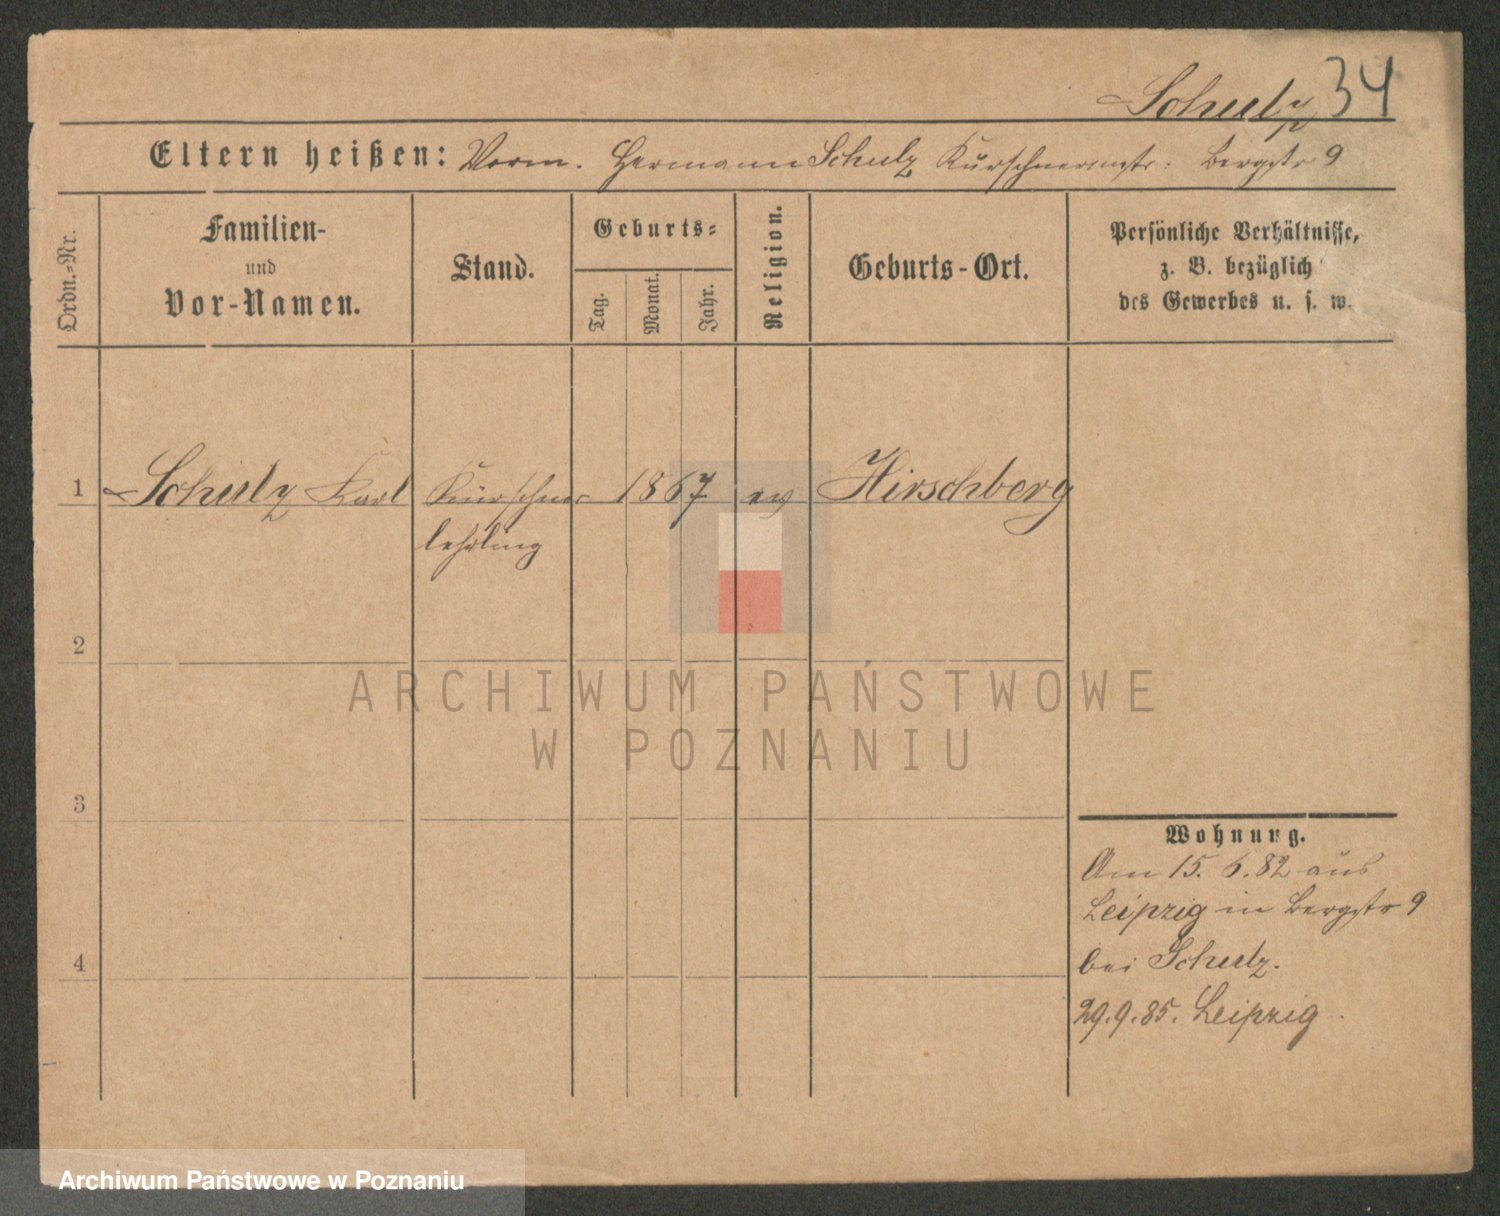 Schulz 34
Eltern heißen: Vorm. Hermann Schulz Kürschnermstr: Bergstr 9
Ordn.-Nr.
Familien-
und
Vor-Namen.
Stand.
Geburts-
Tag.
Monat.
Jahr.
Religion.
Geburts-Ort.
Persönliche Verhältnisse,
z. B. bezüglich
des Gewerbes u. s. w.
1 Schulz Karl Kürschner 1867 ev Hirschberg
lehrling
2
3
4
Wohnung.
Am 15. 6. 82 aus
Leipzig in Bergstr 9
bei Schulz.
29.9.85. Leipzig.
ARCHIWUM PAŃSTWOWE
W POZNANIU
Archiwum Państwowe w Poznaniu